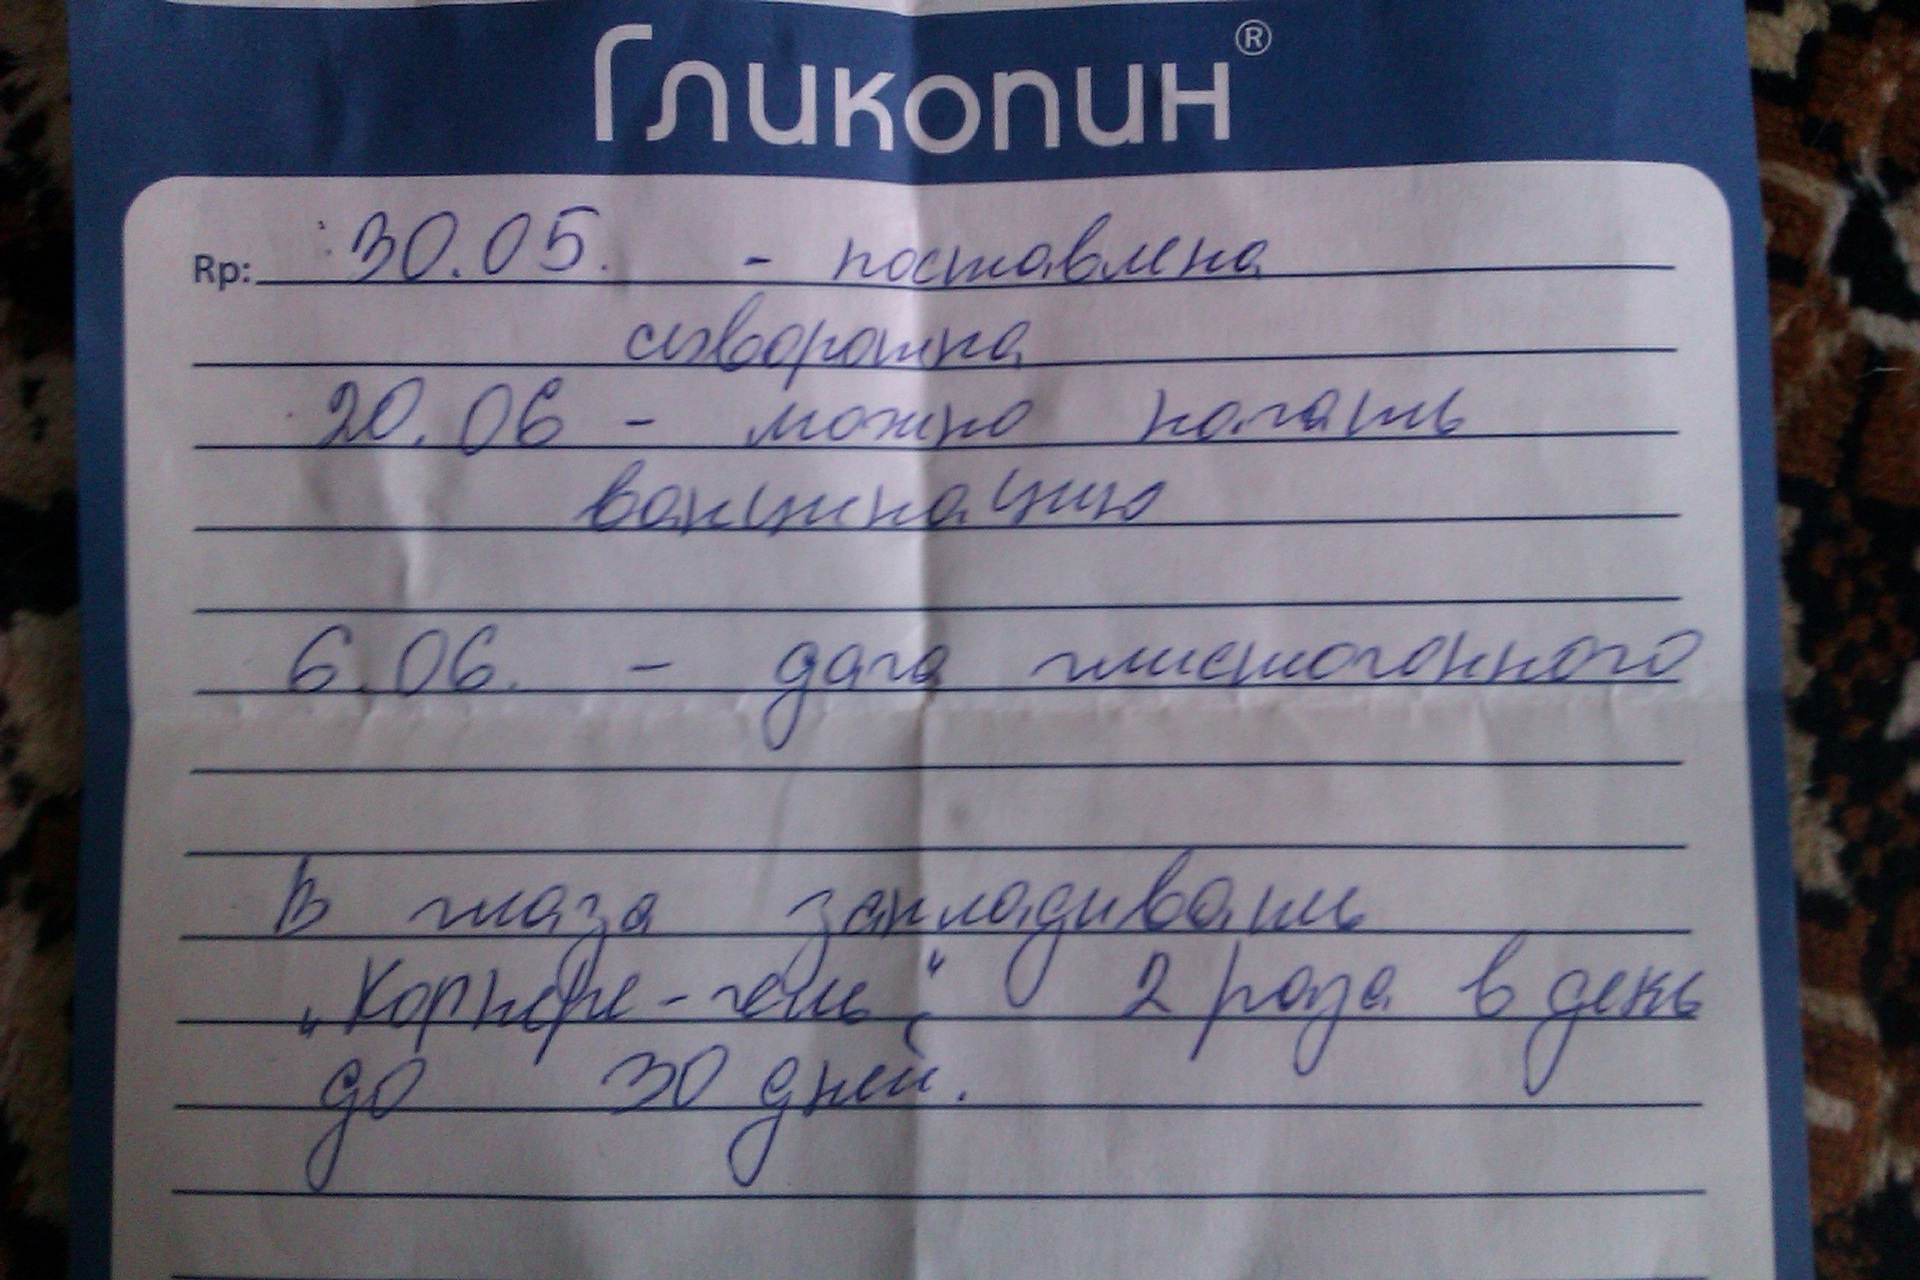 Гликопин®
Rp: 30.05. - поставлена
сыворотка
20.06 - можно начать
вакцинацию
6.06. - дача глистогонного
В глаза закладывать
„Корнере-гель“ 2 раза в день
до 30 дней.